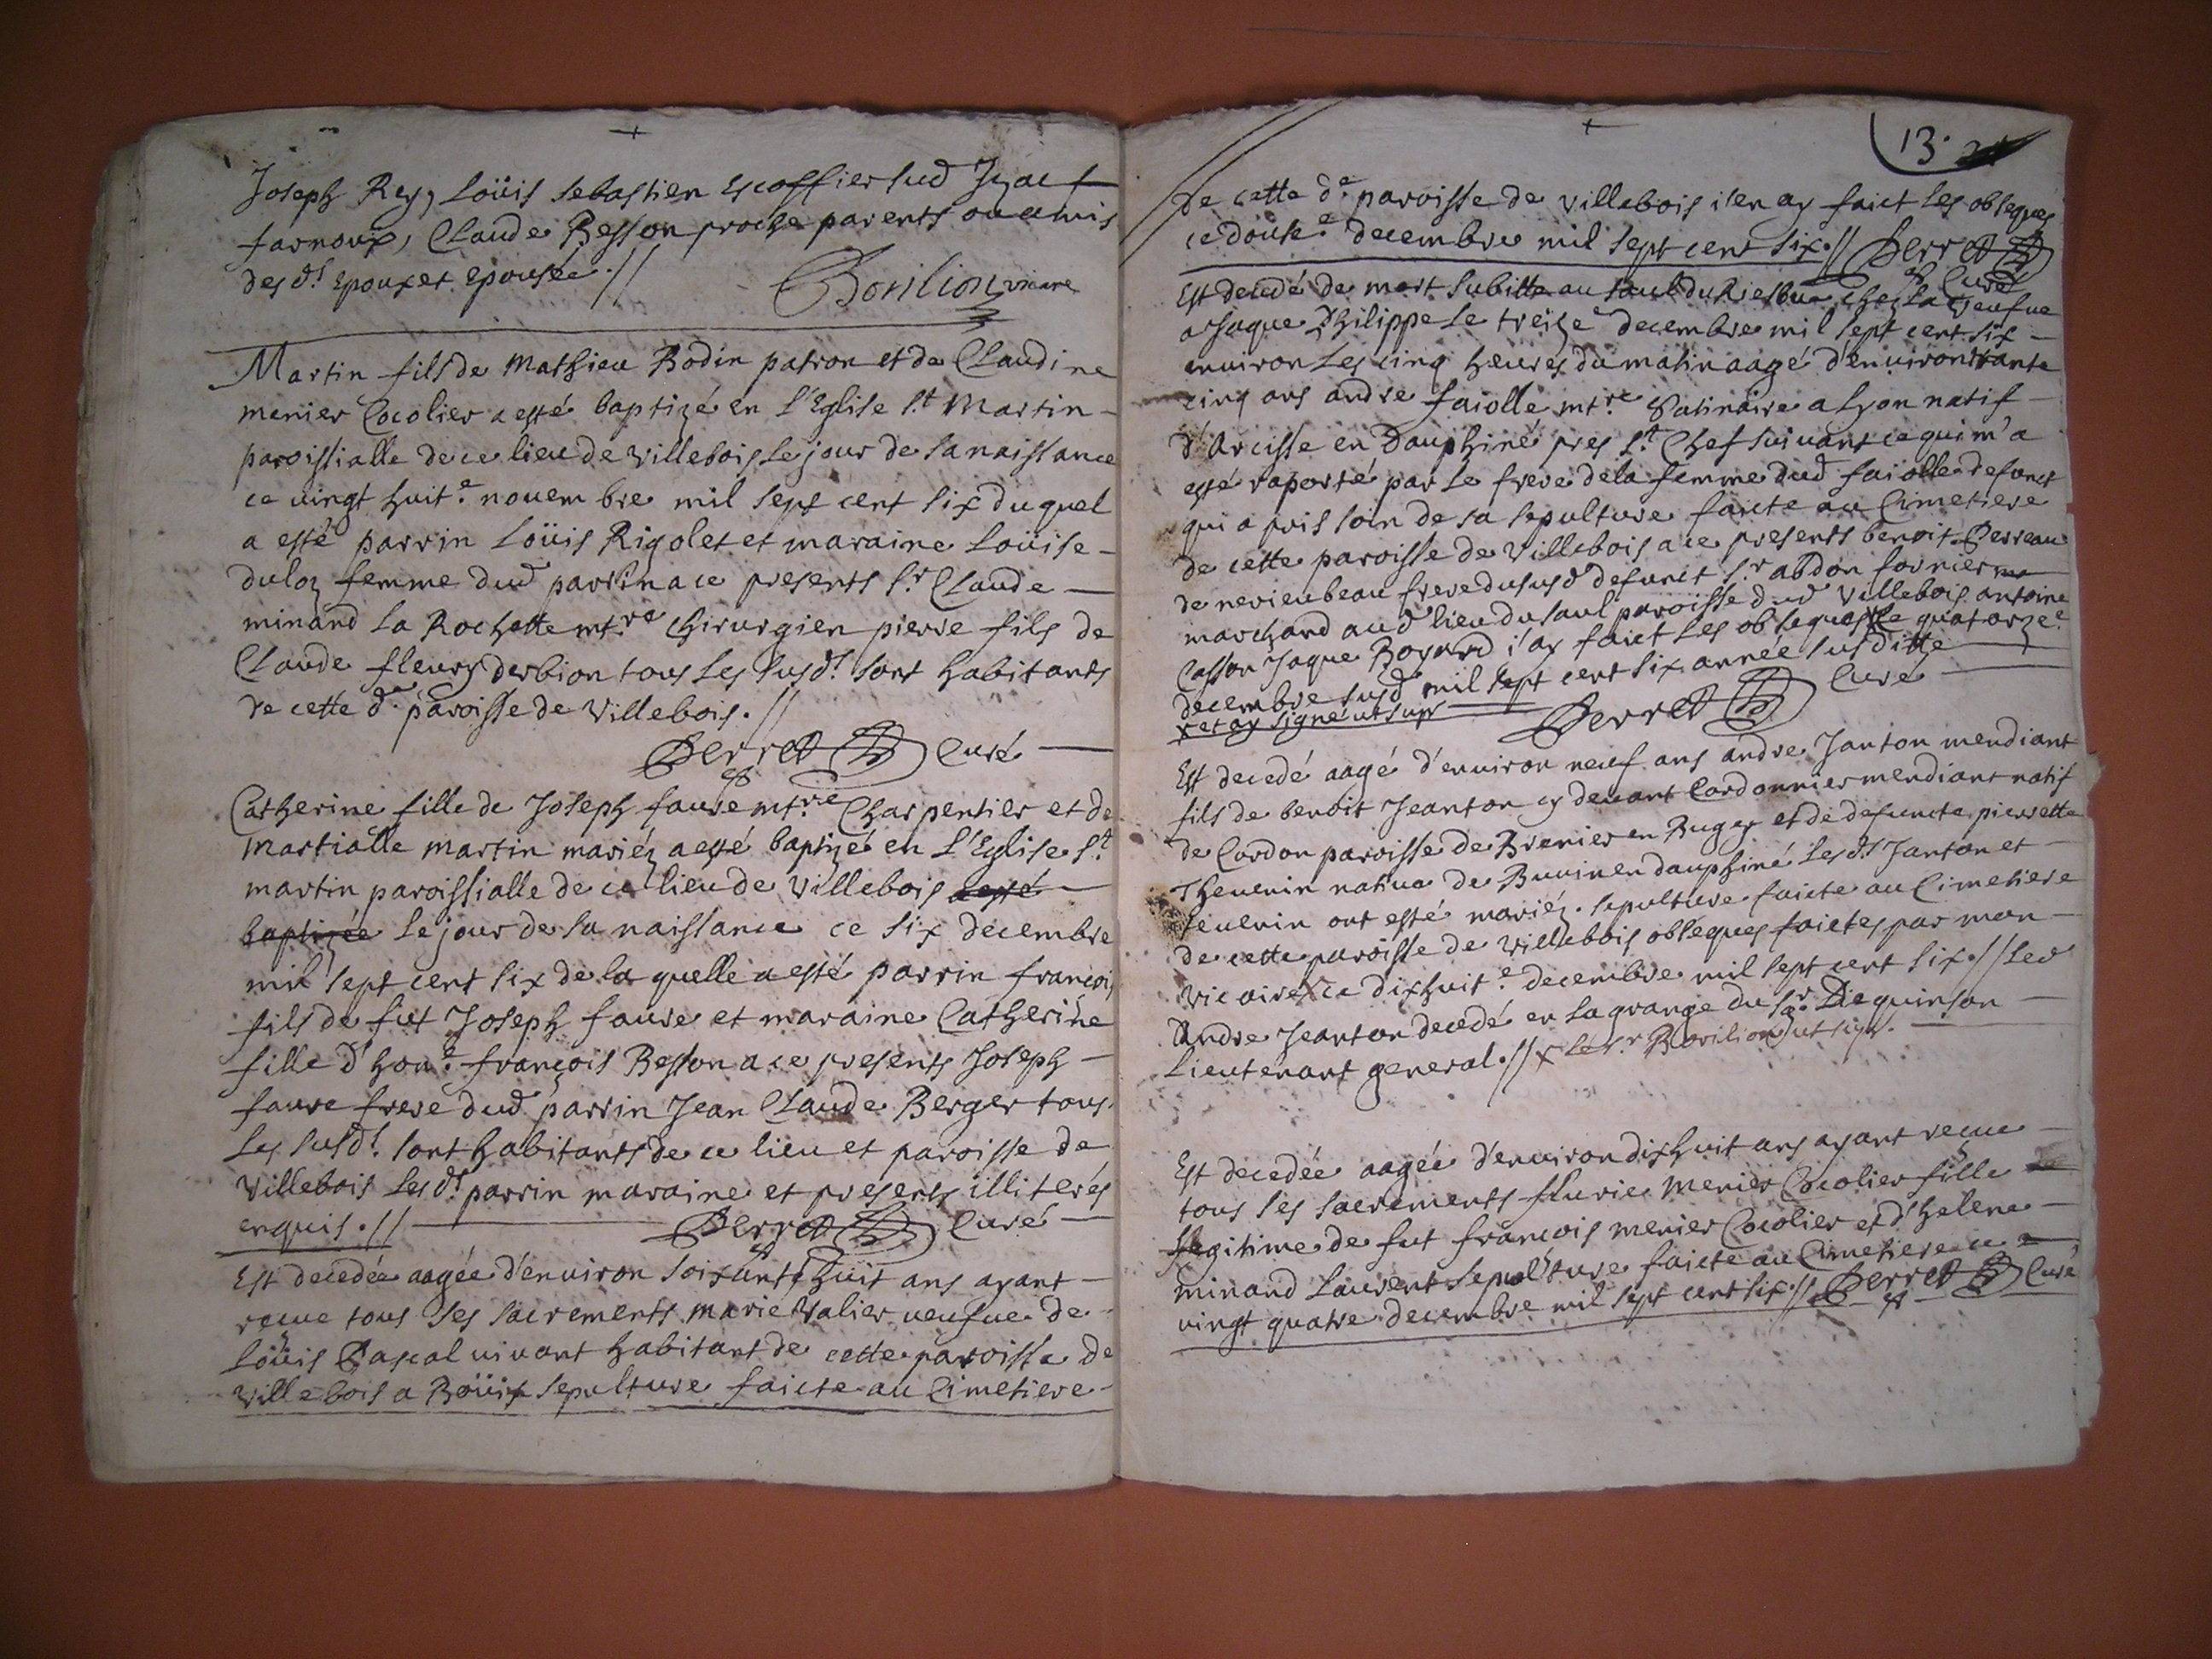 Joseph Rey, Loüis sebastien Escoffier sud Izac f
farnoux, Claude Besson proche parents ou amis
des ds. Epoux et epousée .//
Borilion vicaire
Martin fils de Mathieu Bodin patron et de Claudine
menier Cocolier a esté baptizé en l'Eglise st. Martin
paroissialle de ce lieu de Villebois le jour de sa naissance
ce vingt huit.e nouembre mil sept cent six duquel
a esté parrin Loüis Rigolet et maraine Loüise
duloz femme dud parrin a ce presents sr. Claude
minand La Rochette mtre. Chirurgien pierre fils de
Claude fleury derbion tous les susds. sont habitants
de cette de. paroisse de Villebois .//
Perret Curé
Catherine fille de Joseph faure mtre. Charpentier et de
Martialle martin mariéz a esté baptizé en l'Eglise st.
martin paroissialle de ce lieu de Villebois a esté
baptizée le jour de sa naissance ce six decembre
mil sept cent six de laquelle a esté parrin françois
fils de fut Joseph faure et maraine Catherine
fille d'hone. françois Besson a ce presents Joseph
faure frere dud parrin Jean Claude Berger tous
les susds. sont habitants de ce lieu et paroisse de
Villebois les ds. parrin maraine et presents illiterés
enquis .// Perret Curé
Est decedée aagée d'enuiron soixante huit ans ayant
receue tous ses sacrements marie Valier veufue de
Loüis Pascal vivant habitant de cette paroisse de
Villebois a Boüis sepulture faicte au Cimetiere
13.
de cette de. paroisse de villebois i'en ay faict les obseques
ce douse.e decembre mil sept cent six .// Perret
Curé
Est decedé de mort subitte au sault du chez la veufue
a Jaque Philippe le treize decembre mil sept cent six
enuiron les cinq heures du matin aagé d'enuiron trante
cinq ans andre faiolle mtre. Satinaire a Lyon natif
d'Arcisse en Dauphiné pres st. Chef suiuant ce qui m'a
esté raporté par le frere de la femme dud faiolle defunct
qui a pris soin de sa sepulture faicte au Cimetiere
de cette paroisse de Villebois a ce presents benoit Perreau
de nerieu beau frere du susd defunct sr. abdon fornier
marchand aud lieu du saul paroisse dud Villebois antoine
Casson Jaque Boyard i'ay faict les obseques le quatorze.e
decembre susd mil sept cent six année susditte
x et ay signé ut supr Perret Curé
Est decedé aagé d'enuiron neuf ans andre Janton mendiant
fils de benoit Jeanton cy deuant Cordonnier mendiant natif
de Cordon paroisse de Brenier en Bugey et de defuncte pierrette
Theuenin natiue de Buuin en dauphiné les ds. Janton et
Teuenin ont esté mariéz. sepulture faicte au Cimetiere
de cette paroisse de Villebois obséques faictes par mon
vicaire x ce dixhuit.e decembre mil sept cent six .// Led
Andre Jeanton decedé en la grange du sr. Dieguinson
Lieutenant general .// x Le sr. Borilion ut supr.
Est decedée aagée d'enuiron dixhuit ans ayant receue
tous ses sacrements fluvie Menier Cocolier fille
legitime de fut françois menier Cocolier et d'helene
minand Laurent sepulture faicte au Cimetiere ce
vingt quatre decembre mil sept cent six .// Perret Curé